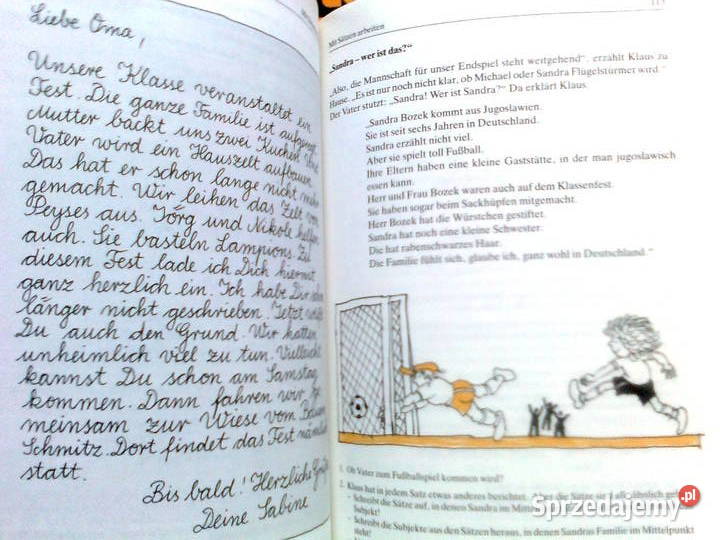 Liebe Oma,
Unsere Klasse veranstaltet ein
Fest. Die ganze Familie ist aufgeregt.
Mutter backt uns zwei Kuchen.
Vater wird ein Hauszelt aufbauen.
Das hat er schon lange nicht mehr
gemacht. Wir leihen das Zelt von
Peyses aus. Jörg und Nikole helfen
auch. Sie basteln Lampions. Zu
diesem Fest lade ich Dich hiermit
ganz herzlich ein. Ich habe Dir
länger nicht geschrieben. Jetzt
Du auch den Grund. Wir hatten
unheimlich viel zu tun. Vielleicht
kannst Du schon am Samstag
kommen. Dann fahren wir
meinsam zur Wiese vom Bauern
Schmitz. Dort findet das Fest
statt.
Bis bald! Herzliche Grüße
Deine Sabine
Mit Sätzen arbeiten
„Sandra – wer ist das?“
„Also, die Mannschaft für unser Endspiel steht weitgehend“, erzählt Klaus zu
Hause. „Es ist nur noch nicht klar, ob Michael oder Sandra Flügelstürmer wird.“
Der Vater stutzt: „Sandra! Wer ist Sandra?“ Da erklärt Klaus:
„Sandra Bozek kommt aus Jugoslawien.
Sie ist seit sechs Jahren in Deutschland.
Sandra erzählt nicht viel.
Aber sie spielt toll Fußball.
Ihre Eltern haben eine kleine Gaststätte, in der man jugoslawisch
essen kann.
Herr und Frau Bozek waren auch auf dem Klassenfest.
Sie haben sogar beim Sackhüpfen mitgemacht.
Herr Bozek hat die Würstchen gestiftet.
Sandra hat noch eine kleine Schwester.
Die hat rabenschwarzes Haar.
Die Familie fühlt sich, glaube ich, ganz wohl in Deutschland.“
1. Ob Vater zum Fußballspiel kommen wird?
2. Klaus hat in jedem Satz etwas anderes berichtet. Aber die Sätze sind alle ähnlich
- Schreibt die Sätze auf, in denen Sandra im Mittelpunkt
Subjekt!
- Schreibt die Subjekte aus den Sätzen heraus, in denen Sandras Familie im Mittelpunkt
steht!
Sprzedajemy.pl